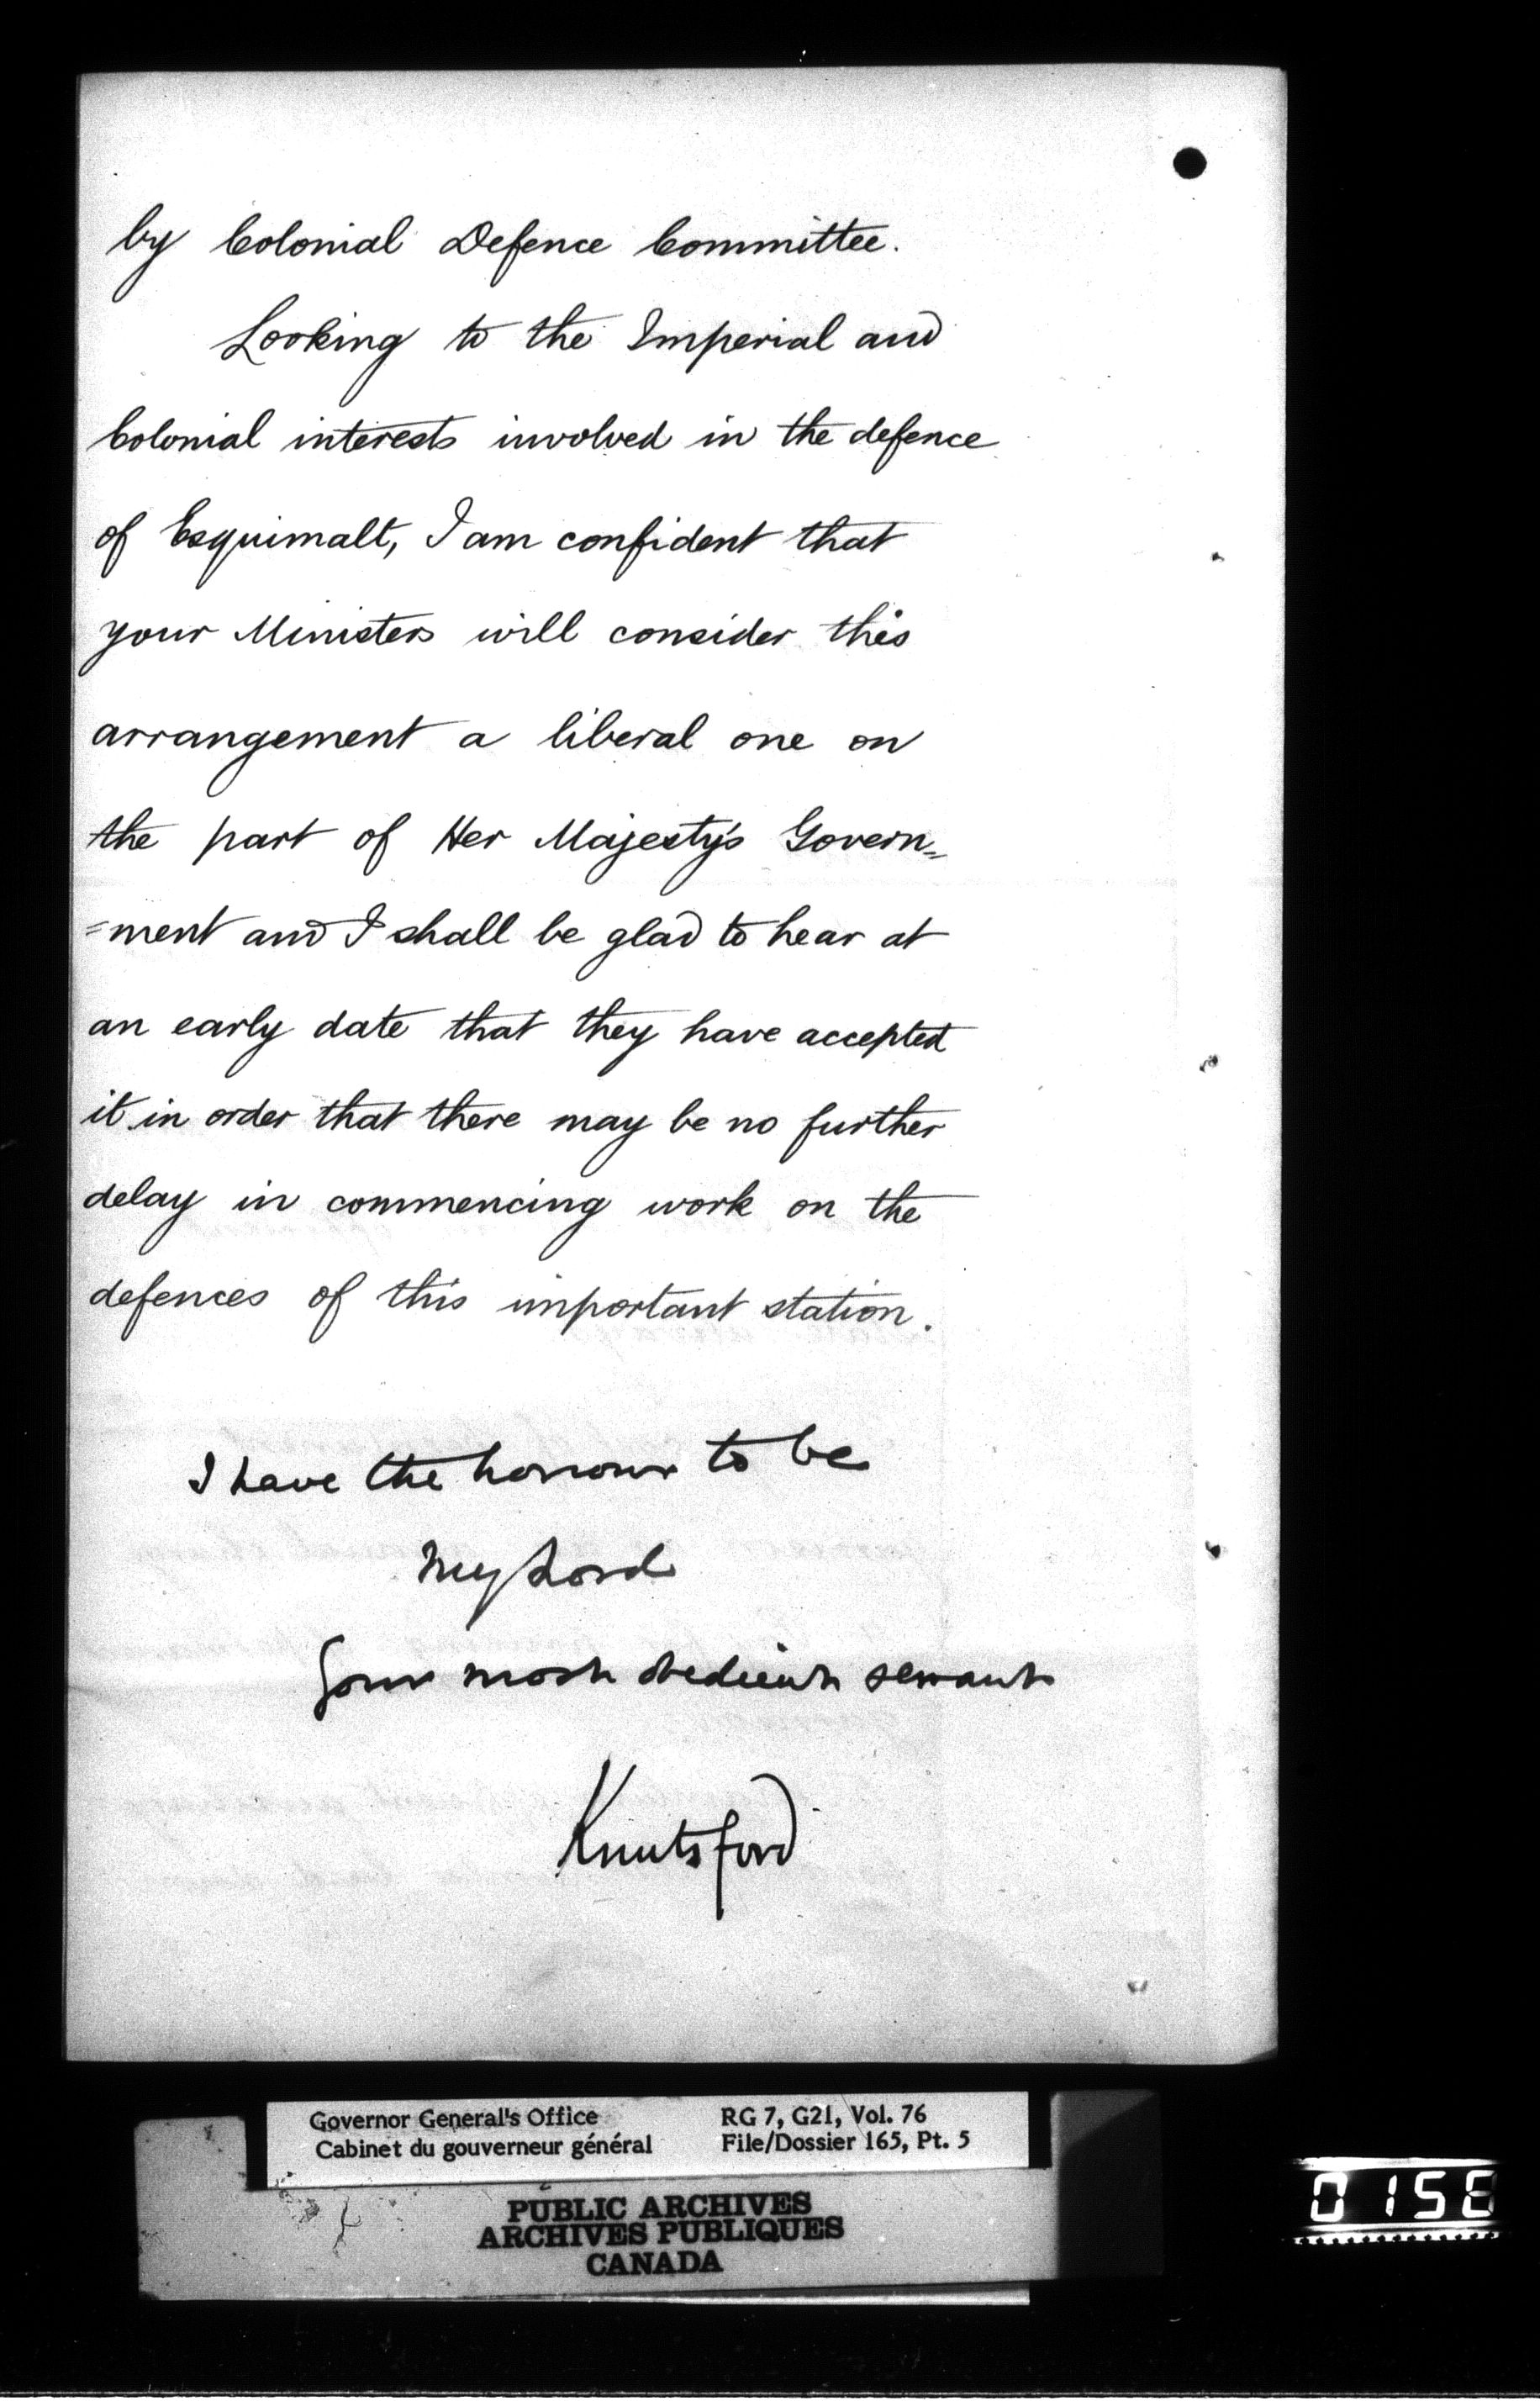 by Colonial Defence Committee.
Looking to the Imperial and
Colonial interests involved in the defence
of Esquimalt, I am confident that
your Ministers will consider this
arrangement a liberal one on
the part of Her Majesty's Govern=
=ment and I shall be glad to hear at
an early date that they have accepted
it in order that there may be no further
delay in commencing work on the
defences of this important station.
I have the honour to be
My Lord
Your most obedient servant
Knutsford
Governor General's Office
Cabinet du gouverneur général
RG 7, G21, Vol. 76
File/Dossier 165, Pt. 5
PUBLIC ARCHIVES
ARCHIVES PUBLIQUES
CANADA